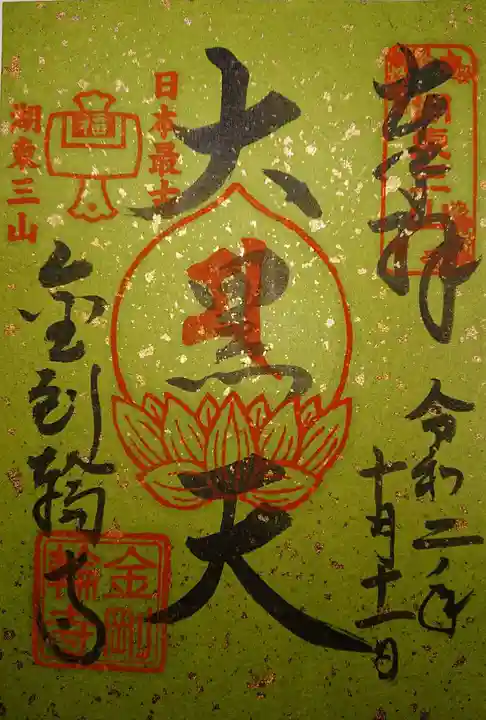 奉拝
令和二年
十月十一日
大黒天
日本最古
湖東三山
福
金剛輪寺
金剛輪寺